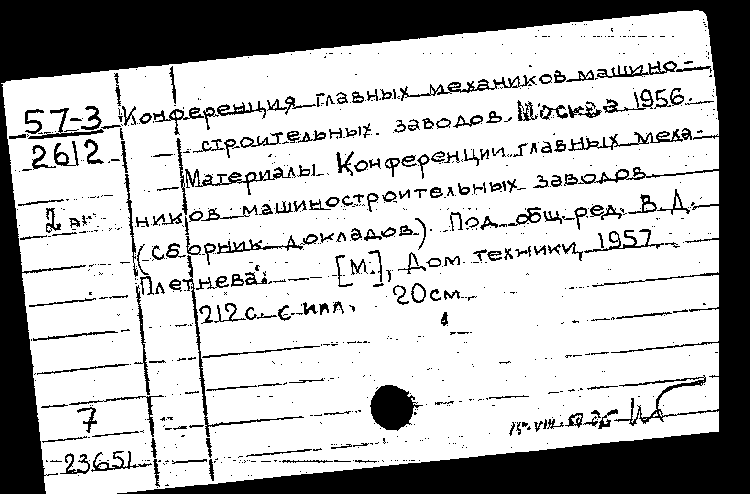 57-3
2612
2 эк
Конференция главных механиков машино-
строительных заводов. Москва. 1956.
Материалы Конференции главных меха-
ников машиностроительных заводов
(сборник докладов). Под общ. ред. В. Д.
Плетнева. [М.], Дом техники, 1957.
212 с. с илл. 20 см.
7
23651